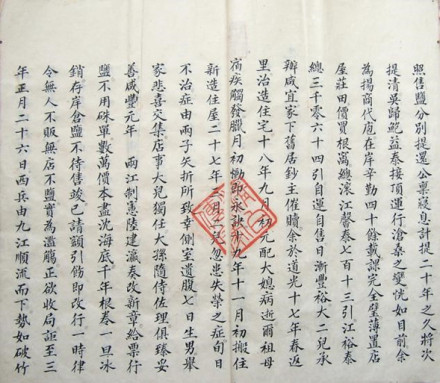 照售鹽分別提還公稟寢息計提二十年之久將次
提清吳歸鮑益泰接頂運行滄桑之變恍如目前余
為揚商代庖在岸辛勤四十餘載課完全璧薄置店
屋莊田價買根窩總滾江馨泰七百十三引江裕泰
總三千零六十四引自運自售日漸豐裕大二兒承
辦咸宜家下舊居鈔主催贖余於道光十七年春返
里治造住宅十八年九月初元配大媳病逝爾祖母
痛疾觸發臘月初慟即永訣十九年十一月初搬住
新造住屋二十七年六月之二兒忽患失榮之症旬日
不治症由兩子矢折所致幸側室遺腹七日生男舉
家悲喜交集店事大兒獨任大孫隨侍佐理俱臻妥
善咸豐元年兩江制憲陸建瀛奏改新章給票行
鹽不用硃單數萬價本盡沉海底千年根卷一旦冰
銷存岸倉鹽不待售竣已請額引飭即改行一時律
令無人不販無店不鹽實為濫觴正欲收局詎至三
年正月二十六日西兵由九江順流而下勢如破竹